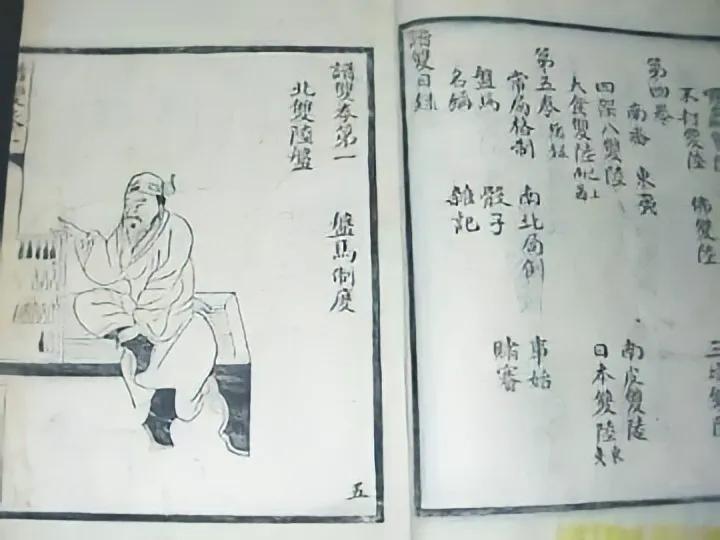 不打雙陸 佛雙陸
第四卷
南番 東夷
四架八雙陸 南皮雙陸
大食雙陸 日本雙陸 東夷
第五卷
常局格制 南北局例 事始
盤馬 骰子 賭
名稱 雜記
譜雙目錄
譜雙卷第一 盤馬制度
北雙陸盤
五